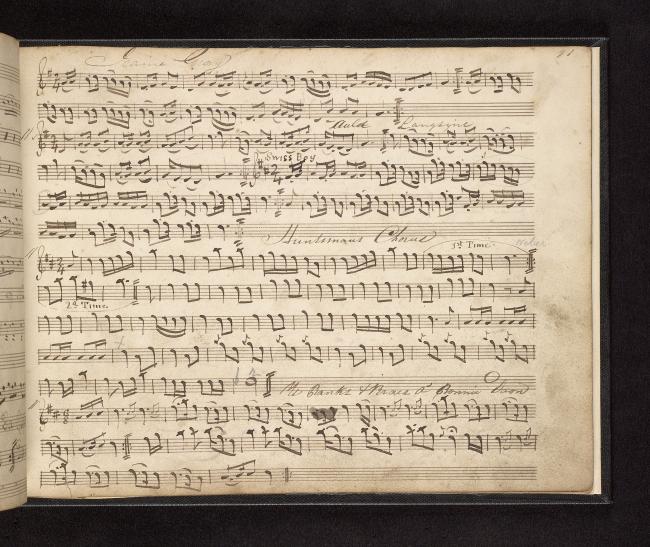 21
Jeanie Gray
Auld Langsyne
Swiss Boy
Huntsmans Chorus
1st Time
Weber
2d Time
Ye Banks & Braes O' Bonnie Doon